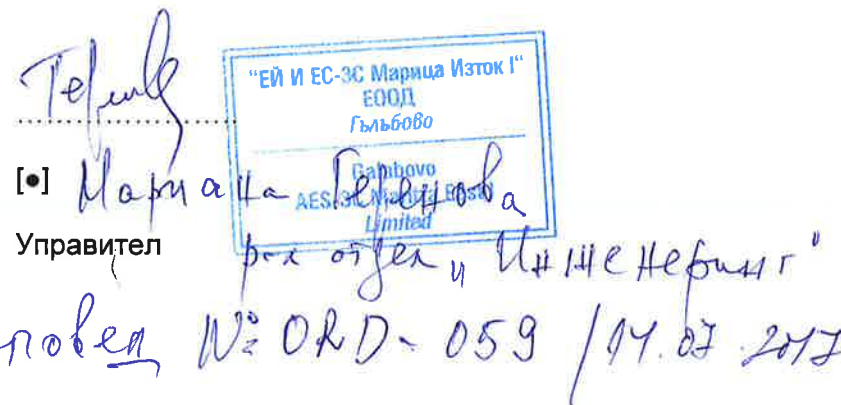 "ЕЙ И ЕС-3С Марица Изток I"
ЕООД
Гълъбово
Galabovo
AES-3C Maritza East I
Limited
[●] Мариана Геренова
Управител
рък отдел „Инженеринг"
повед №: ORD - 059 / 14.07.2017